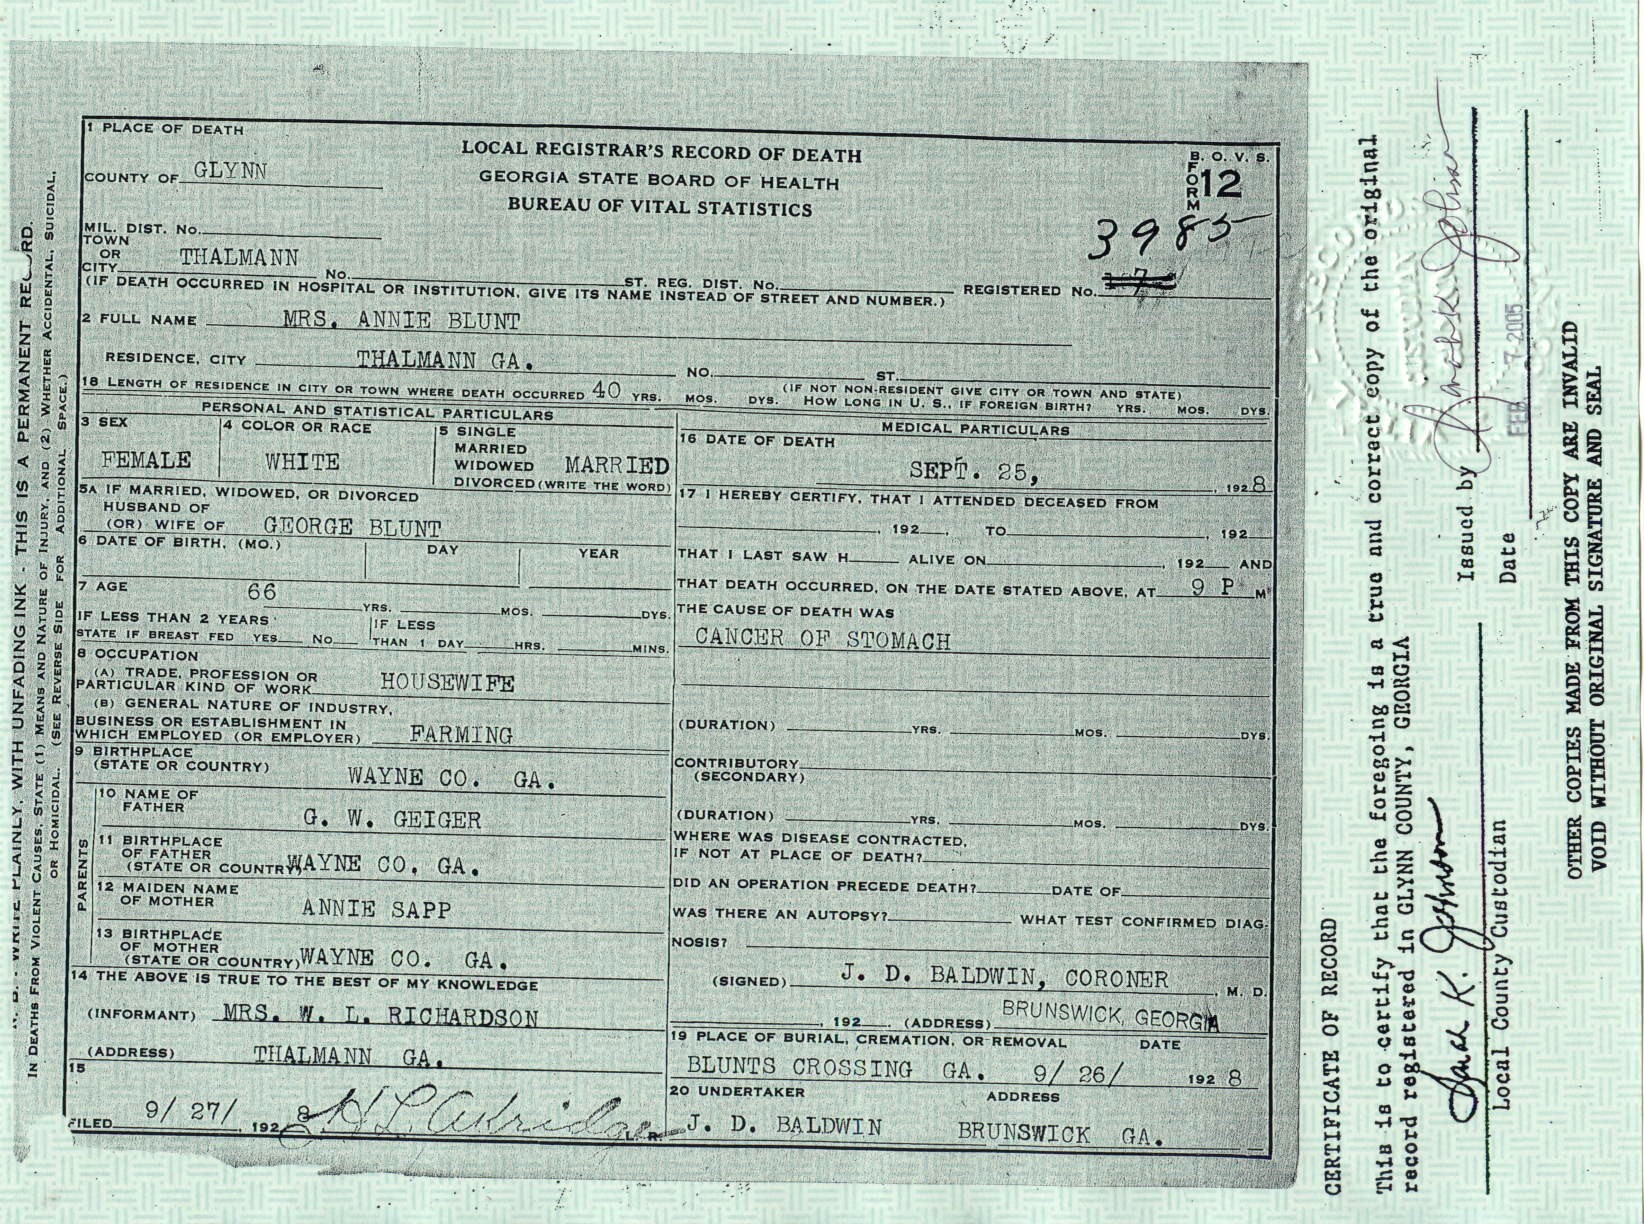 1 PLACE OF DEATH
COUNTY OF GLYNN
LOCAL REGISTRAR'S RECORD OF DEATH
GEORGIA STATE BOARD OF HEALTH
BUREAU OF VITAL STATISTICS
B. O. V. S.
FORM 12
3985
MIL. DIST. No.
TOWN
OR
CITY THALMANN No. ST. REG. DIST. No. REGISTERED No. 7
(IF DEATH OCCURRED IN HOSPITAL OR INSTITUTION, GIVE ITS NAME INSTEAD OF STREET AND NUMBER.)
2 FULL NAME MRS. ANNIE BLUNT
RESIDENCE, CITY THALMANN GA. NO. ST.
(IF NOT NON-RESIDENT GIVE CITY OR TOWN AND STATE)
18 LENGTH OF RESIDENCE IN CITY OR TOWN WHERE DEATH OCCURRED 40 YRS. MOS. DYS. HOW LONG IN U. S., IF FOREIGN BIRTH? YRS. MOS. DYS.
PERSONAL AND STATISTICAL PARTICULARS
3 SEX
FEMALE
4 COLOR OR RACE
WHITE
5 SINGLE
MARRIED
WIDOWED MARRIED
DIVORCED (WRITE THE WORD)
5A IF MARRIED, WIDOWED, OR DIVORCED
HUSBAND OF
(OR) WIFE OF GEORGE BLUNT
6 DATE OF BIRTH, (MO.) DAY YEAR
7 AGE 66 YRS. MOS. DYS.
IF LESS THAN 2 YEARS
STATE IF BREAST FED YES No
IF LESS
THAN 1 DAY HRS. MINS.
8 OCCUPATION
(A) TRADE, PROFESSION OR
PARTICULAR KIND OF WORK HOUSEWIFE
(B) GENERAL NATURE OF INDUSTRY,
BUSINESS OR ESTABLISHMENT IN
WHICH EMPLOYED (OR EMPLOYER) FARMING
9 BIRTHPLACE
(STATE OR COUNTRY) WAYNE CO. GA.
PARENTS
10 NAME OF
FATHER G. W. GEIGER
11 BIRTHPLACE
OF FATHER
(STATE OR COUNTRY) WAYNE CO, GA.
12 MAIDEN NAME
OF MOTHER ANNIE SAPP
13 BIRTHPLACE
OF MOTHER
(STATE OR COUNTRY) WAYNE CO. GA.
14 THE ABOVE IS TRUE TO THE BEST OF MY KNOWLEDGE
(INFORMANT) MRS. W. L. RICHARDSON
(ADDRESS) THALMANN GA.
15
FILED 9/ 27/, 1928 H L Akridge L. R.
MEDICAL PARTICULARS
16 DATE OF DEATH
SEPT. 25, , 1928
17 I HEREBY CERTIFY, THAT I ATTENDED DECEASED FROM
, 192 , TO , 192
THAT I LAST SAW H ALIVE ON , 192 AND
THAT DEATH OCCURRED, ON THE DATE STATED ABOVE, AT 9 P M
THE CAUSE OF DEATH WAS
CANCER OF STOMACH
(DURATION) YRS. MOS. DYS.
CONTRIBUTORY
(SECONDARY)
(DURATION) YRS. MOS. DYS.
WHERE WAS DISEASE CONTRACTED,
IF NOT AT PLACE OF DEATH?
DID AN OPERATION PRECEDE DEATH? DATE OF
WAS THERE AN AUTOPSY? WHAT TEST CONFIRMED DIAG-
NOSIS?
(SIGNED) J. D. BALDWIN, CORONER , M. D.
, 192 . (ADDRESS) BRUNSWICK, GEORGIA
19 PLACE OF BURIAL, CREMATION, OR REMOVAL DATE
BLUNTS CROSSING GA. 9/ 26/ 1928
20 UNDERTAKER ADDRESS
J. D. BALDWIN BRUNSWICK GA.
N. B. - WRITE PLAINLY, WITH UNFADING INK - THIS IS A PERMANENT RECORD.
IN DEATHS FROM VIOLENT CAUSES, STATE (1) MEANS AND NATURE OF INJURY, AND (2) WHETHER ACCIDENTAL, SUICIDAL,
OR HOMICIDAL. (SEE REVERSE SIDE FOR ADDITIONAL SPACE.)
CERTIFICATE OF RECORD
This is to certify that the foregoing is a true and correct copy of the original
record registered in GLYNN COUNTY, GEORGIA
Sarah K. Johnson
Local County Custodian
Issued by Sarah K. Johnson
Date FEB. 7 2005
OTHER COPIES MADE FROM THIS COPY ARE INVALID
VOID WITHOUT ORIGINAL SIGNATURE AND SEAL